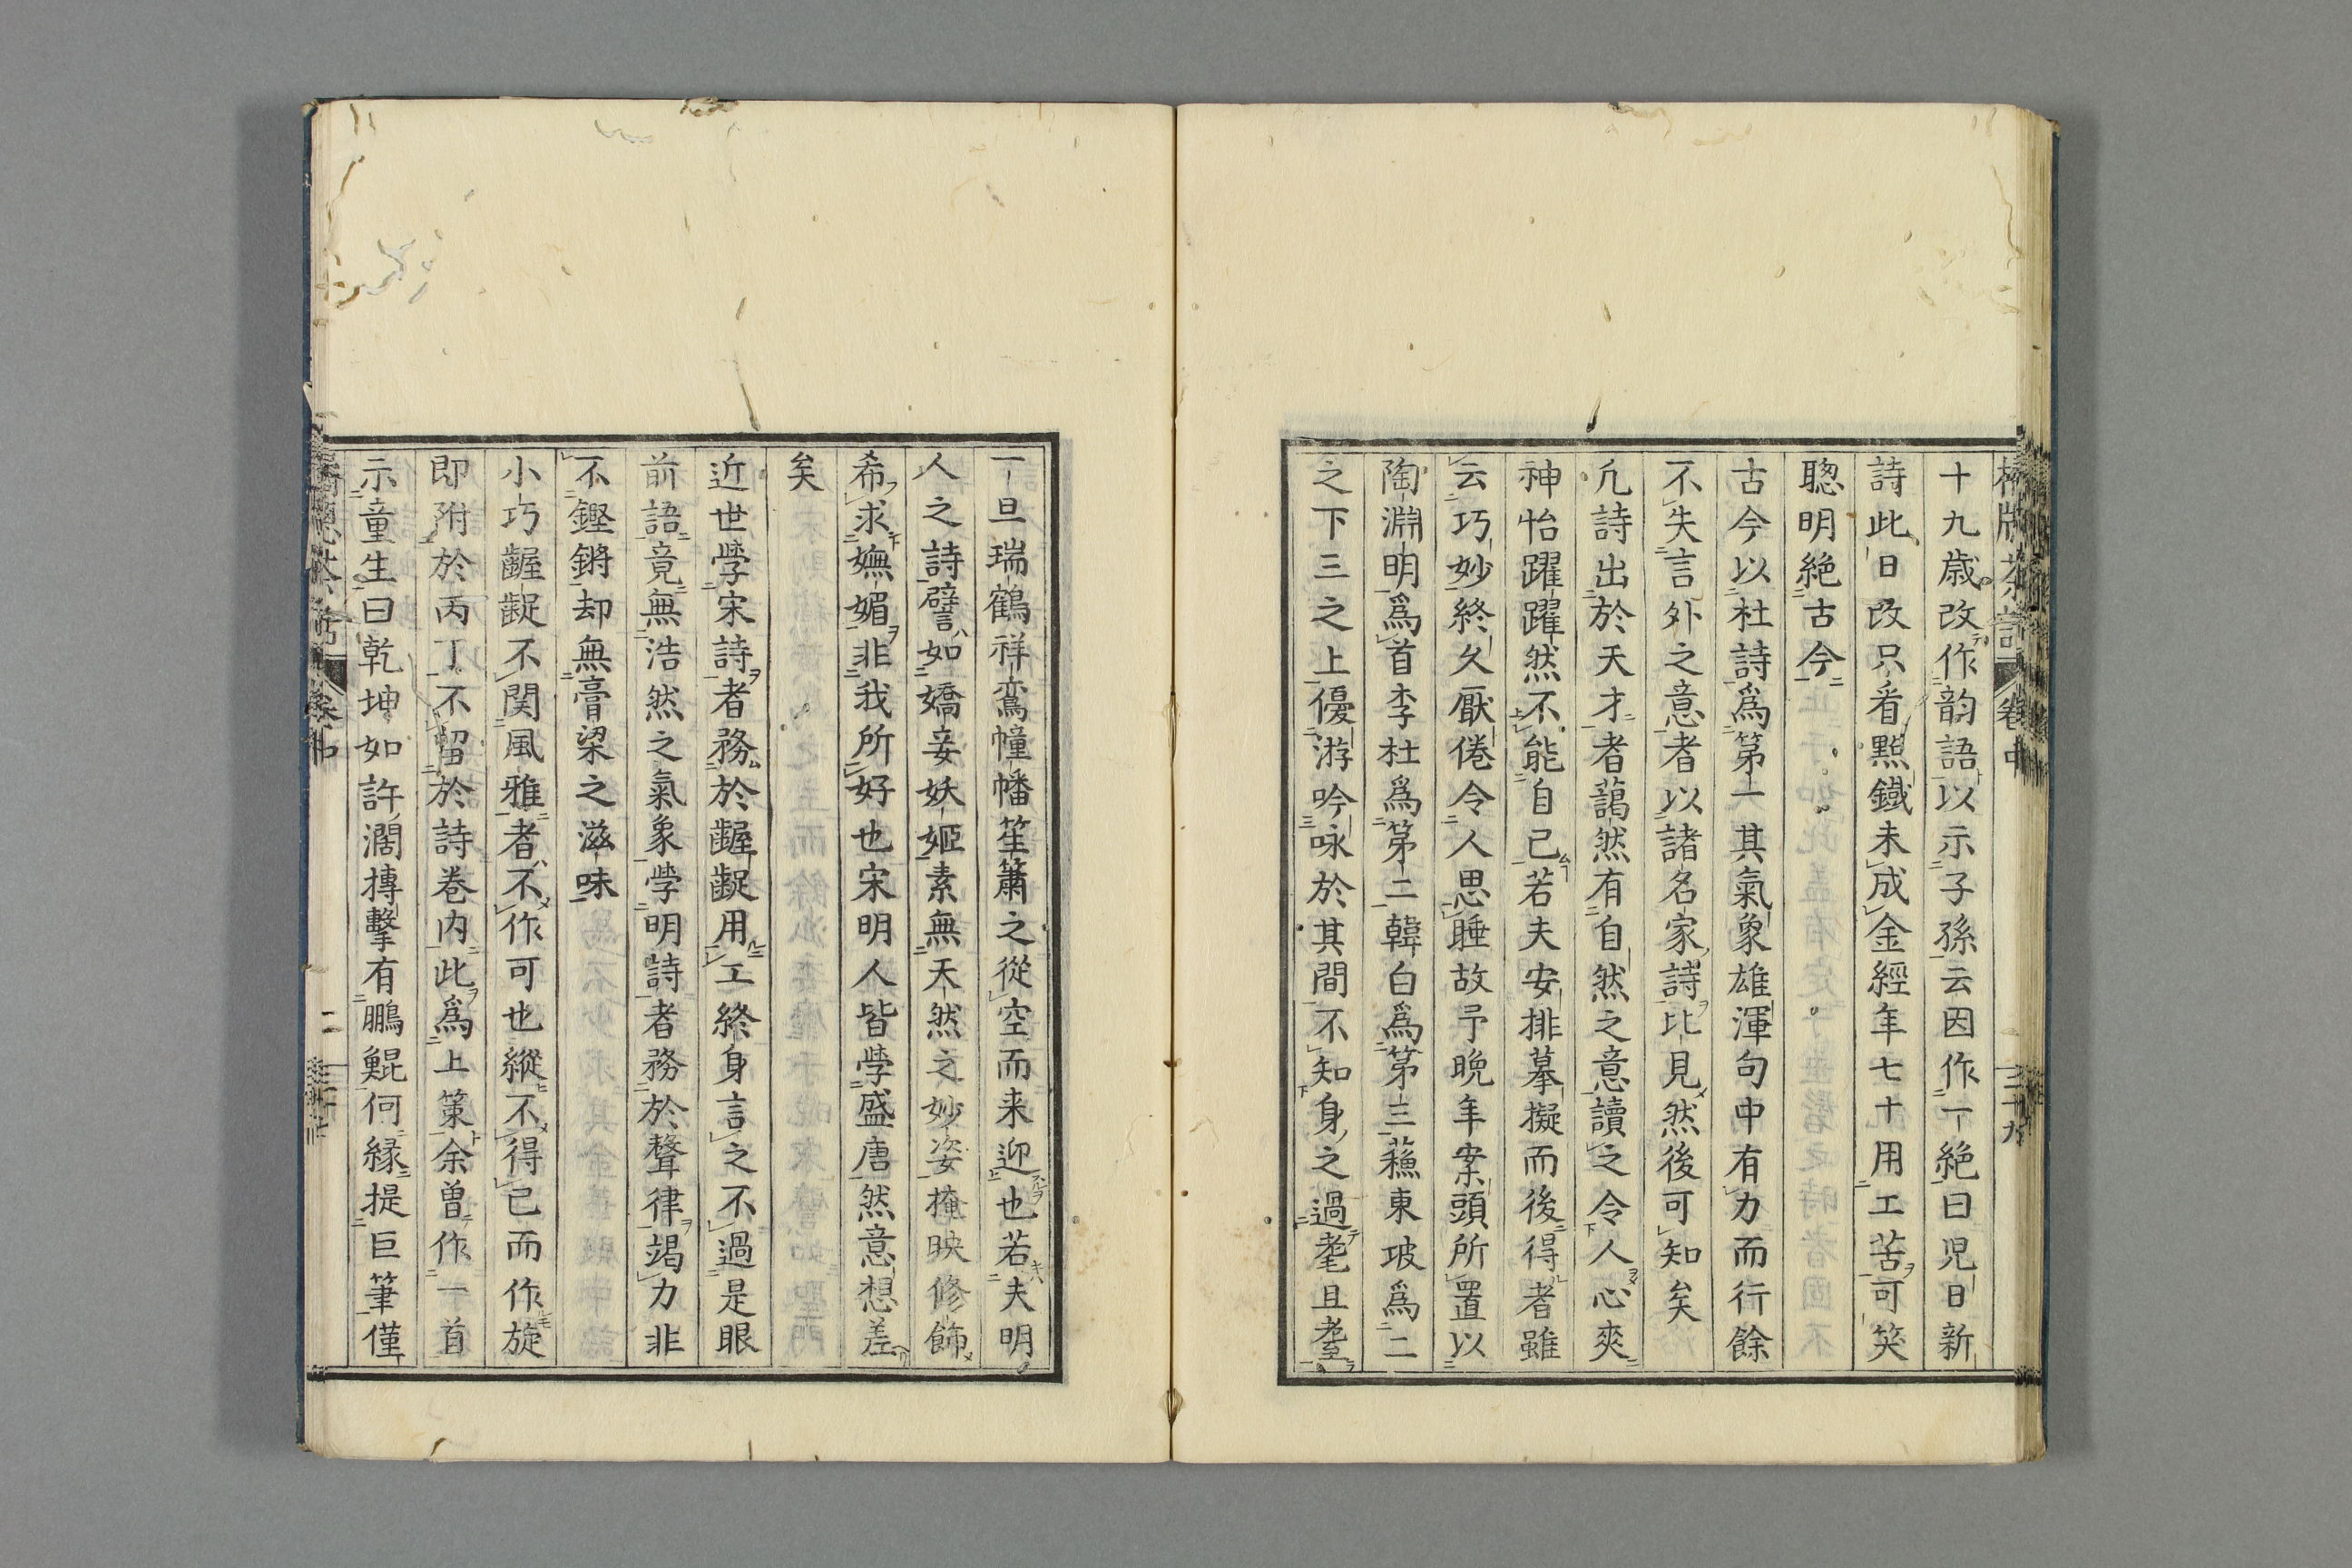 十九歳改作韵語以示子孫云因作一絶曰児日新
詩此日改只看㸃鐵未成金經年七十用工苦可笑
聰明絶古今
古今以杜詩爲第一其氣象雄渾句中有力而行餘
不失言外之意者以諸名家詩比見然後可知矣
凢詩出於天才者藹然有自然之意讀之令人心爽
神怡躍躍然不能自已若夫安排摹擬而後得者雖
云巧妙終久厭倦令人思睡故予晩年案頭所置以
陶淵明爲首李杜爲第二韓白爲第三蘓東坡爲二
之下三之上優游吟咏於其間不知身之過耄且耋
一旦瑞鶴祥鸞幢幡笙簫之從空而来迎也若夫明
人之詩譬如嬌妾妖姬素無天然之妙姿掩映修飾
希求嫵媚非我所好也宋明人皆學盛唐然意想差
矣
近世學宋詩者務於齷齪用工終身言之不過是眼
前語竟無浩然之氣象學明詩者務於聲律竭力非
不鏗鏘却無膏粱之滋味
小巧齷齪不関風雅者不作可也縱不得已而作旋
即附於丙丁不留於詩巻内此爲上策余曽作一首
示童生曰乾坤如許濶摶擊有鵬鯤何縁提巨筆僅